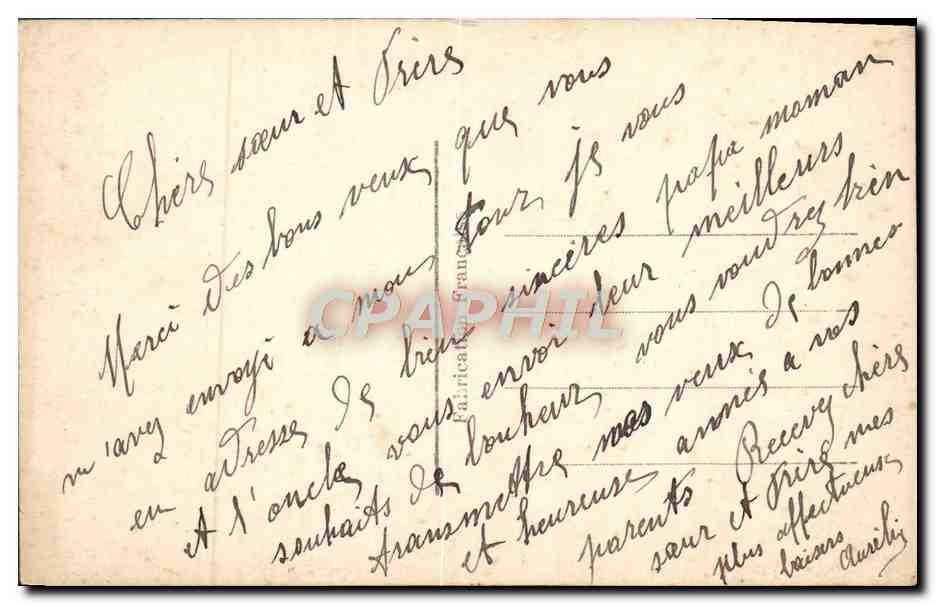 Chers sœur et Frère
Merci des bons veux que vous
m'avez envoyé a mon tour je vous
en adresse de bien sincères papa maman
et l'oncle vous envoi leur meilleurs
souhaits de bonheur vous voudrez bien
transmettre mes veux de bonnes
et heureuse année a vos
parents Recevez chers
sœur et Frère mes
plus affectueux
baisers
Aurélie
Fabrication Française
CPAPHIL